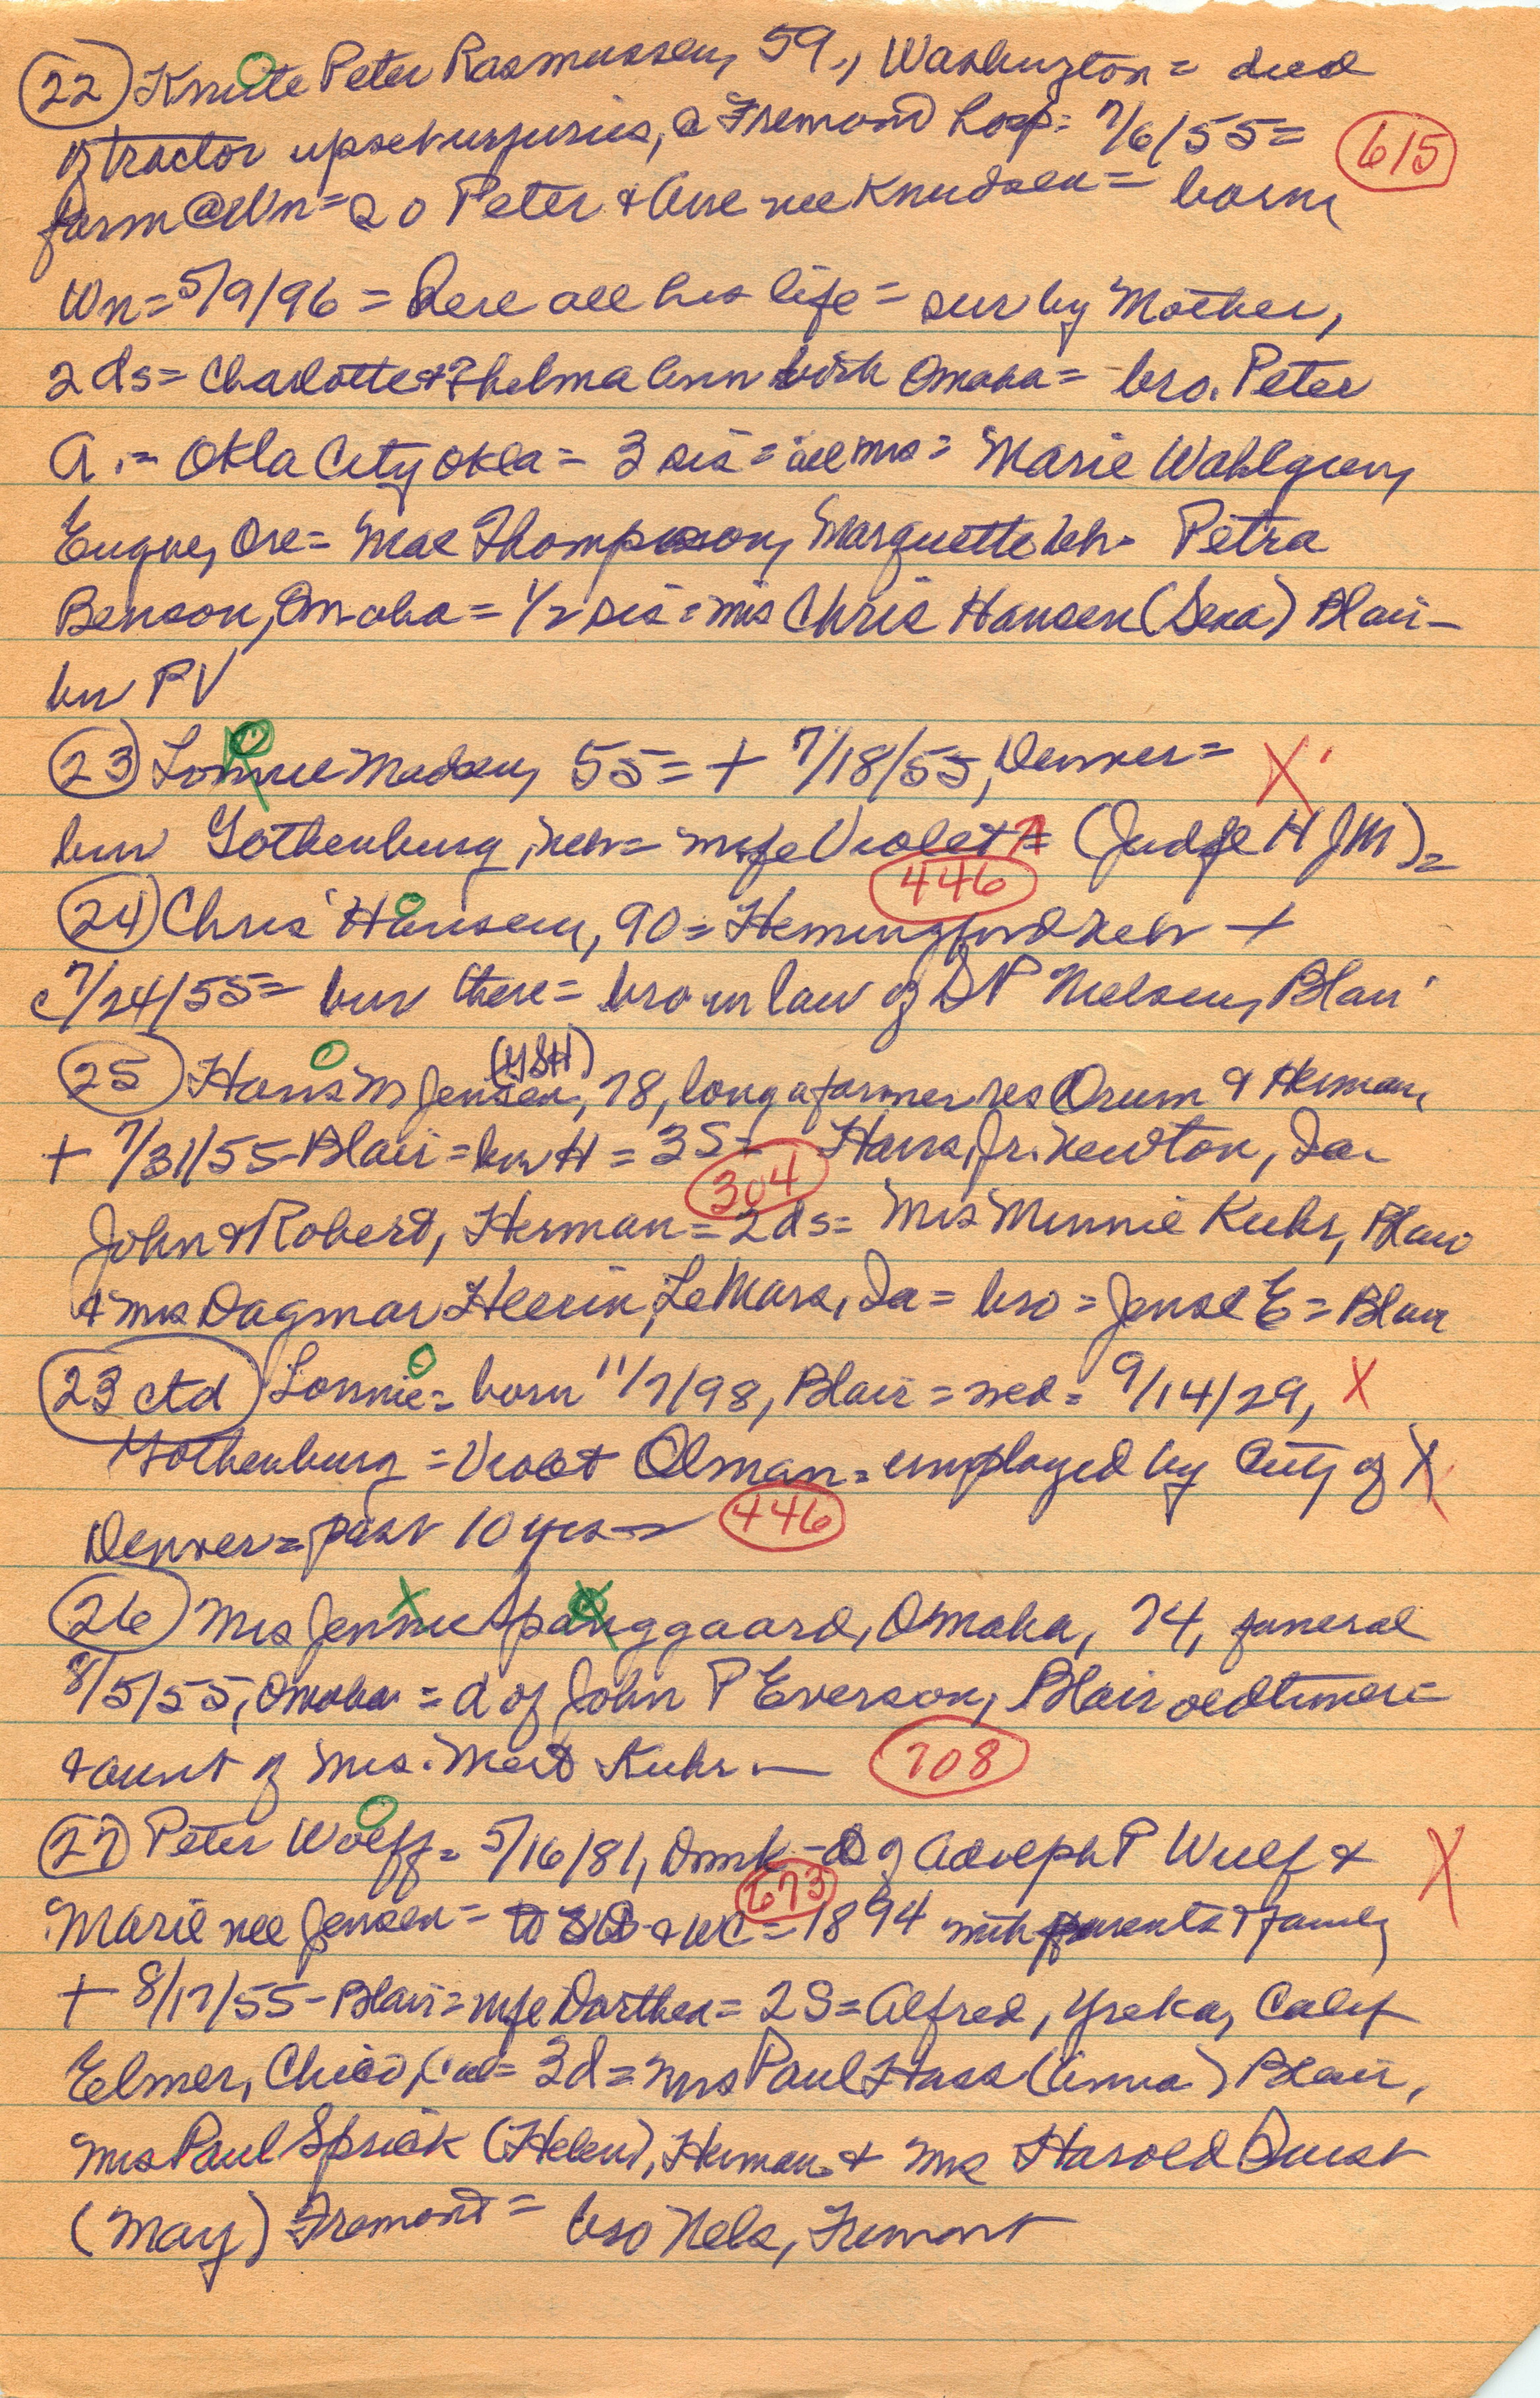 (22) Knute Peter Rasmussen, 59., Washington = died
of tractor upset injuries, @ Fremont hosp = 7/6/55 = (615)
farm @ Wn = Peter & Ane nee Knudsen = born,
Wn = 5/9/96 = here all his life = sur by Mother,
2 ds = Charlotte & Thelma Ann both Omaha = bro. Peter
A. = Okla City Okla = 3 sis = all mrs = Marie Wahlgren,
Eugne, Ore = Mae Thompson, Marquette Neb. Petra
Benson, Omaha = 1/2 sis = mrs Chris Hansen (Sena) Blair -
bur PV
(23) Lonnie Madsen, 55 = + 7/18/55, Denver = X
bur Gothenburg, neb = wife Violet = (Judge H J M) =
446
(24) Chris Hansen, 90 = Hemingford Nebr +
c 7/24/55 = bur there = bro in law of S P Nielsen, Blair
(25) Hans M Jensen, 78, long a farmer res Orum & Herman,
+ 7/31/55 - Blair = bur H = 3 S = Hans, Jr. Newton, Ia.
304
John & Robert, Herman = 2 ds = Mrs Minnie Kuhr, Blair
& mrs Dagmar LeMars, Ia = bro = Jense E = Blair
(23 ctd) Lonnie = born 11/7/98, Blair = wed = 9/14/29, X
Gothenburg = Violet Olman = employed by City of X
Denver = past 10 yrs (446)
(26) Mrs Jennie Spanggaard, Omaha, 74, funeral
8/5/55, Omaha = d of John P Everson, Blair oldtimer =
& aunt of Mrs. Mert Kuhr — (708)
(27) Peter Wolff = 5/16/81, Dnmk - S of Adolph P Wulf & X
673
Marie nee Jensen = to US & WC = 1894 with parents & family
+ 8/17/55 - Blair = wife Dorthea = 2 S = Alfred, Yreka, Calif
Elmer, Chico, Cal = 3 d = Mrs Paul Hass (Anna) Blair,
Mrs Paul Sprick (Helen), Herman & Mrs Harold Quist
(May) Fremont = bro Nels, Fremont